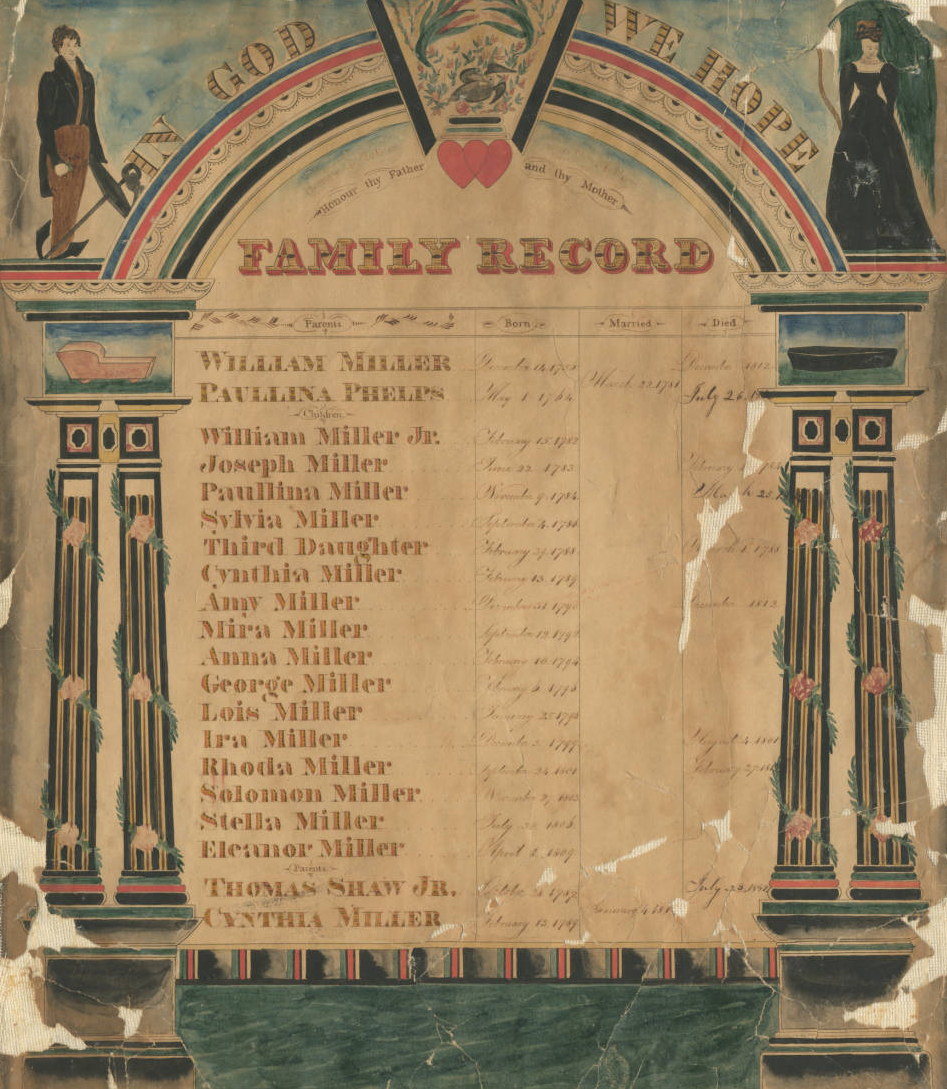 IN GOD WE HOPE
Honour thy Father and thy Mother
FAMILY RECORD
Parents Born Married Died
WILLIAM MILLER December 1812
PAULLINA PHELPS May 1 1764 March 22 1781 July 26
Children
William Miller Jr. February 15 1782
Joseph Miller June 22 1783 February
Paullina Miller November 9 1784 March 25
Sylvia Miller September 4 1786
Third Daughter February 29 1788 1788
Cynthia Miller February 13 1789
Amy Miller December 31 1790 1812
Mira Miller September 12 1792
Anna Miller February 10 1794
George Miller February 5 1795
Lois Miller January 25
Ira Miller December 2 1799 August 4 1801
Rhoda Miller September 24 1801 February 27
Solomon Miller November 27 1803
Stella Miller July 1806
Eleanor Miller April 2 1809
Parents
THOMAS SHAW JR. October 1787 July
CYNTHIA MILLER February 13 1789 January